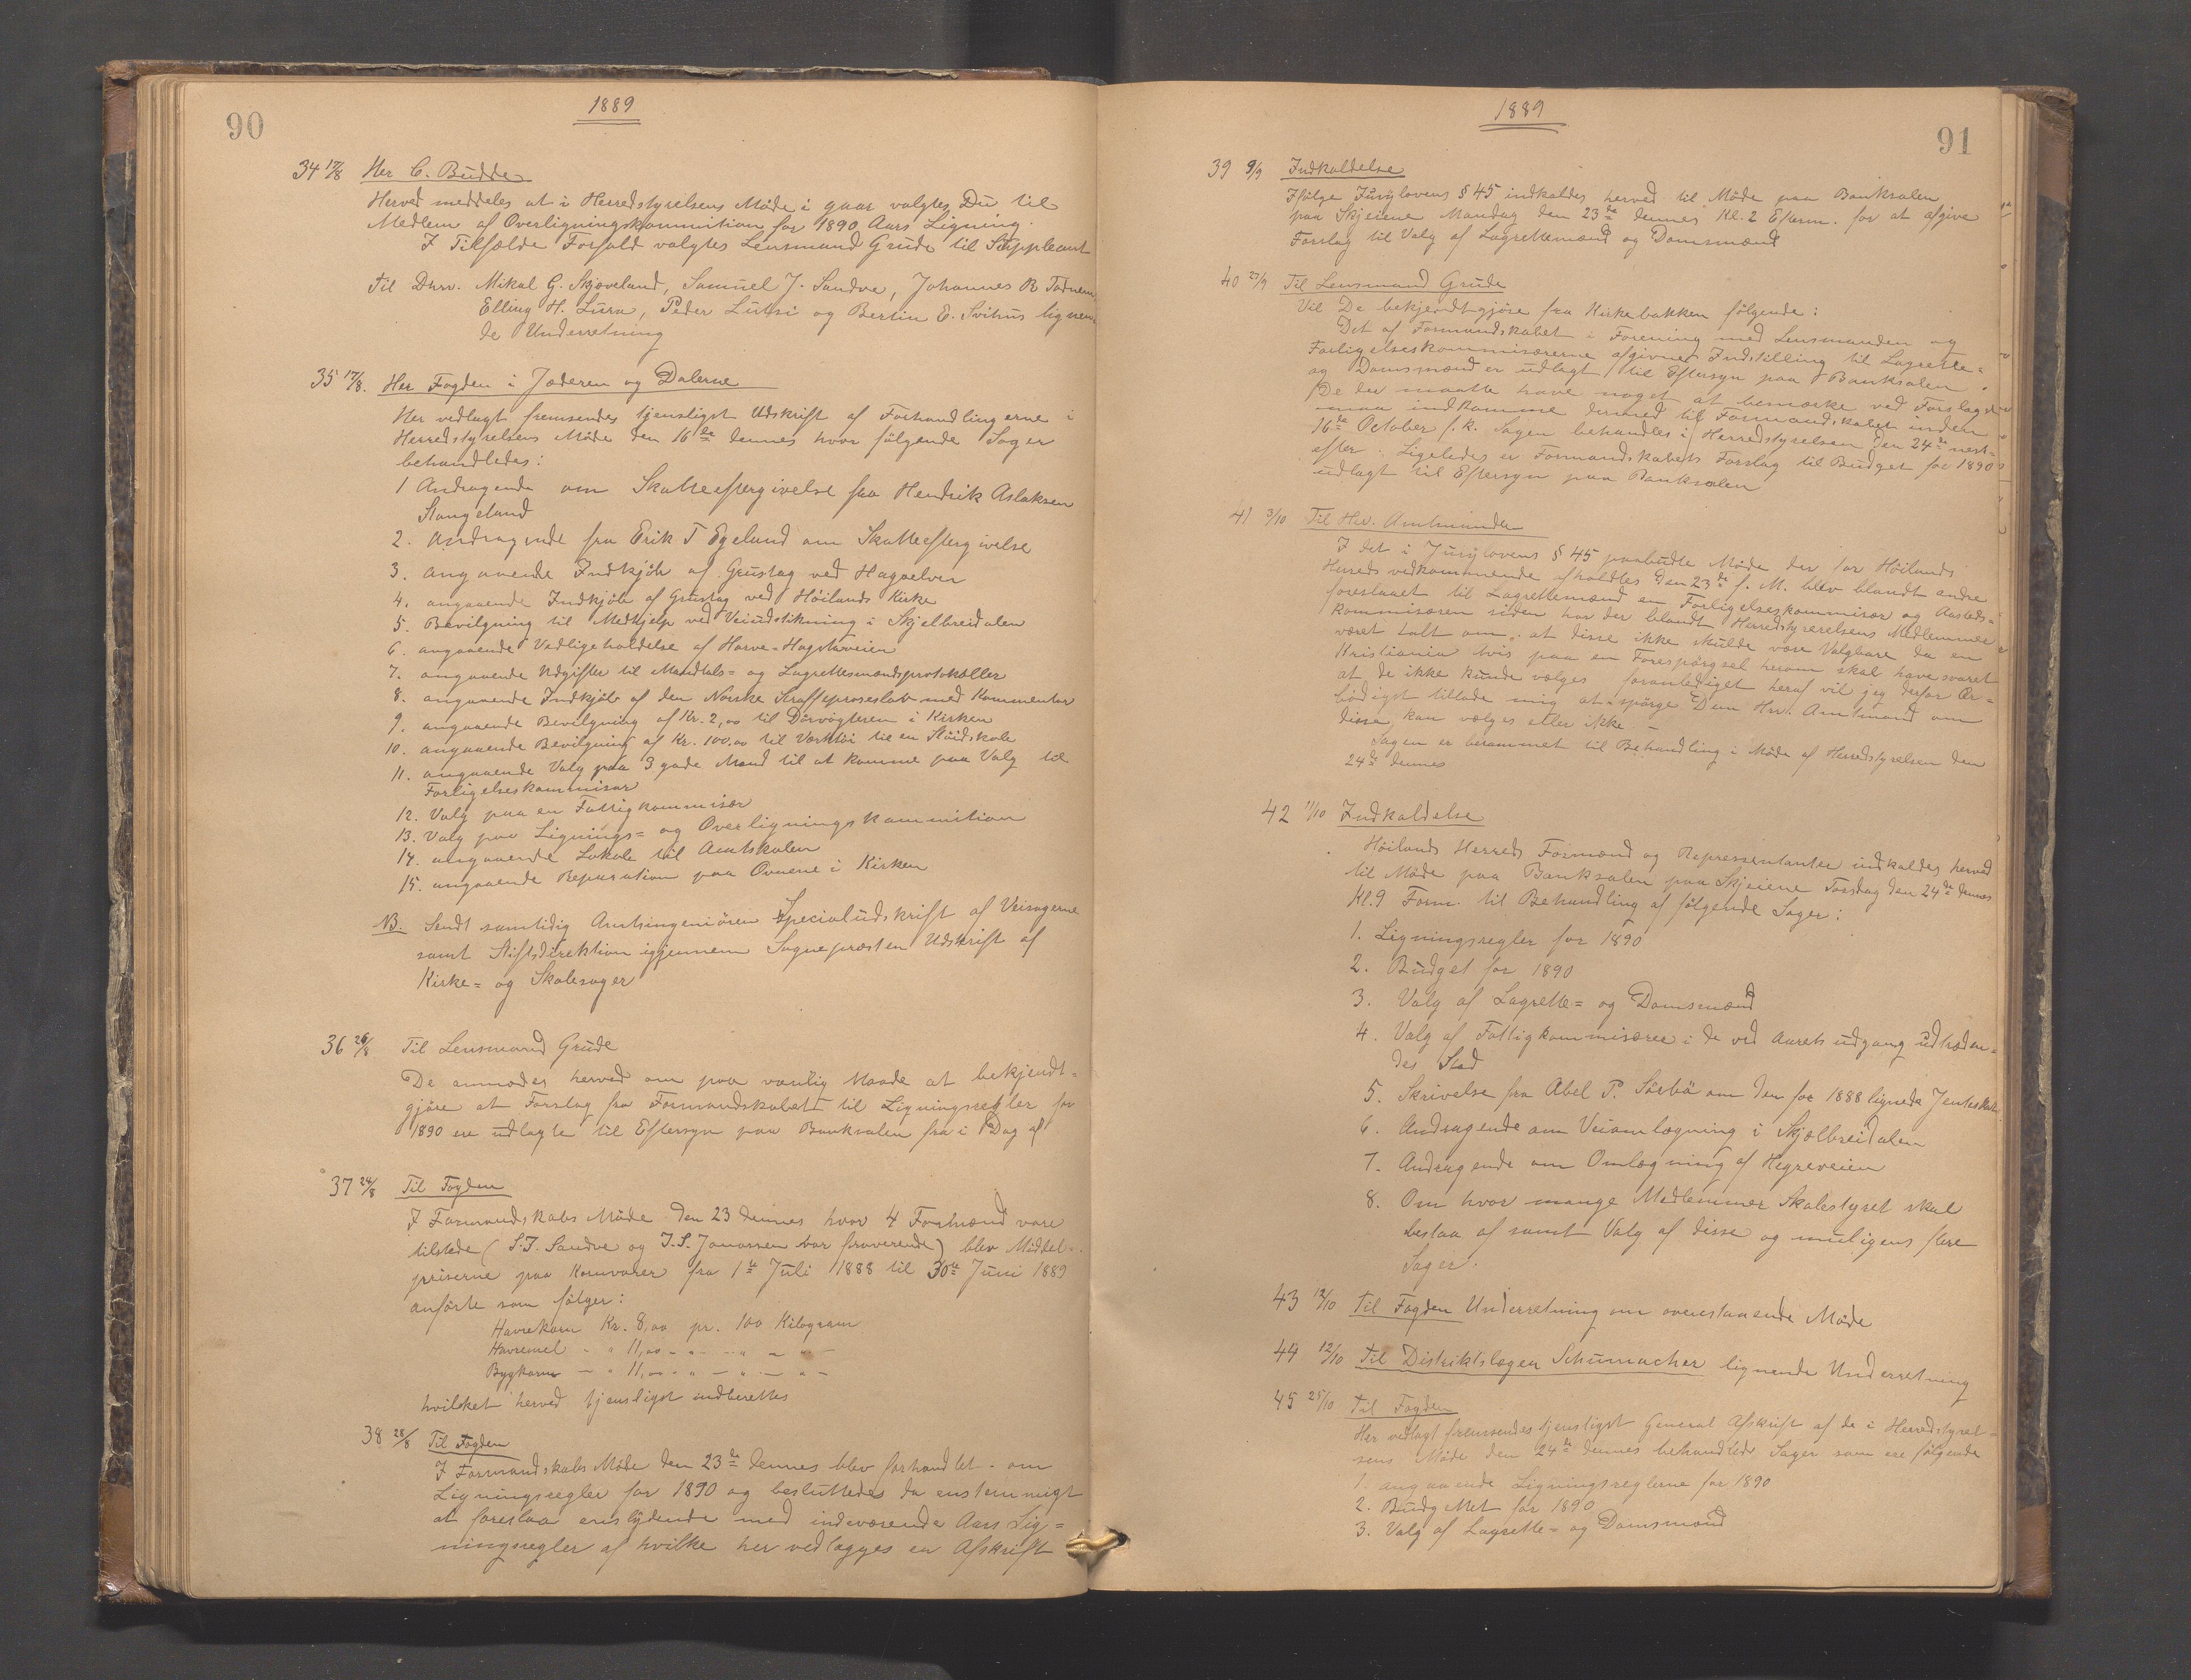 90
1889
34 17/8 Her C. Budde
Herved meddeles at i Herredstyrelsens Möde i gaar valgtes Du til
Medlem af Overligningskommition for 1890 Aars Ligning.
I Tilfælde Forfald valgtes Lensmand Grude til Suppleant
Til Dhrr. Mikal G. Skjæveland, Samuel J. Sandve, Johannes R Tadnem,
Elling H. Lura, Peder Lutsi og Bertin E. Svihus lignen=
de Underretning
35 17/8. Her Fogden i Jæderen og Dalerne
Her vedlagt fremsendes tjenstligst Udskrift af Forhandlingerne i
Herredstyrelsens Möde den 16de dennes hvor fölgende Sager
behandledes:
1 Andragende om Skatteeftergivelse fra Hendrik Aslaksen
Stangeland
2. Andragende fra Erik T Egeland om Skatteeftergivelse
3. angaaende Indkjöb af Grustag ved Hagaelven
4. angaaende Indkjöb af Grustag ved Höilands Kirke
5. Bevilgning til Medhjelp ved Veiudstikning i Skjelbreidalen
6. angaaende Vedligeholdelse af Harve-Hogstaveien
7. angaaende Udgifter til Mandtals= og Lagrettesmandsprotokoller
8. angaaende Indkjöb af den Norske Straffeproseslov med Kommentar
9. angaaende Bevilgning af Kr. 2,00 til Dörvögteren i Kirken
10. angaaende Bevilgning af Kr. 100,00 til Verktöi til en Slöidskole
11. angaaende Valg paa 3 gode Mænd til at komme paa Valg til
Forligelseskommisær
12. Valg paa en Fattigkommisær
13. Valg paa Lignings= og Overligningskommition
14. angaaende Lokale til Amtskolen
15. angaaende Reparation paa Ovnene i Kirken
NB. Sendt samtidig Amtsingeniören Specialudskrift af Veisagerne
samt Stiftsdirektion igjennem Sognepræsten Udskrift af
Kirke= og Skolesager
36 26/8 Til Lensmand Grude
De anmodes herved om paa vanlig Maade at bekjendt=
gjöre at Forslag fra Formandskabet til Ligningsregler for
1890 ere udlagte til Eftersyn paa Banksalen fra i Dag af
37 24/8 Til Fogden
I Formandskabs Möde den 23 dennes hvor 4 Formænd vare
tilstede (S.J. Sandve og J.S. Jonassen var fraverende) blev Middel=
priserne paa Kornvarer fra 1te Juli 1888 til 30te Juni 1889
anförte som fölger:
Havrekorn Kr. 8,00 pr. 100 Kilogram
Havremel - " 11,00 - " - - " - " -
Bygkorn - " 11,00 - " - " - - " -
hvilket herved tjenstligst indberettes
38 28/8 Til Fogden
I Formandskabs Möde den 23de dennes blev forhandlet om
Ligningsregler for 1890 og besluttedes da enstemmigt
at foreslaa enslydende med indeværende Aars Lig=
ningsregler af hvilke her vedlægges en Afskrift
91
1889
39 9/9 Indkaldelse
Ifölge Jurylovens § 45 indkaldes herved til Möde paa Banksalen
paa Skjeiene Mandag den 23de dennes Kl. 2 Efterm. for at afgive
Forslag til Valg af Lagrettemænd og Domsmænd
40 27/9 Til Lensmand Grude
Vil De bekjendtgjöre fra Kirkebakken fölgende:
Det af Formandskabet i Forening med Lensmanden og
Forligelseskommisærerne afgivne Indstilling til Lagrette=
og Domsmænd er udlagt til Eftersyn paa Banksalen.
De der maatte have noget at bemærke ved Forslaget
maa indkomme dermed til Formandskabet inden
16de October f.k. Sagen behandles i Herredstyrelsen den 24de nest=
efter. Ligeledes er Formandskabets Forslag til Budget for 1890
udlagt til Eftersyn paa Banksalen
41 3/10 Til Hr. Amtmanden
I det i Jurylovens § 45 paabudte Möde der for Höilands
Herreds vedkommende afholdtes den 23de f. M. blev blandt andre
foreslaaet til Lagrettemænd en Forligelseskommisær og Aasteds=
kommisæren siden har der blandt Herredstyrelsens Medlemmer
været talt om, at disse ikke skulde være Valgbare da en
Kristiania Avis paa en Forespörgsel herom skal have svaret
at de ikke kunde vælges foranlediget heraf vil jeg derfor Ær=
bödigst tillade mig at spörge Dem Hr. Amtmand om
disse kan vælges eller ikke -
Sagen er berammet til Behandling i Möde af Herredstyrelsen den
24de dennes
42 11/10 Indkaldelse
Höilands Herreds Formænd og Repressentanter indkaldes herved
til Möde paa Banksalen paa Skjeiene Torsdag den 24de dennes
Kl. 9 Form. til Behandling af fölgende Sager:
1. Ligningsregler for 1890
2. Budget for 1890
3. Valg af Lagrette= og Domsmænd
4. Valg af Fattigkommisærer i de ved Aarets udgang udtræden=
des Sted
5. Skrivelse fra Abel P. Sörbö om den for 1888 lignede
6. Andragende om Veiomlægning i Skjælbreidalen
7. Andragende om Omlægning af Hegreveien
8. Om hvor mange Medlemmer Skolestyret skal
bestaa af samt Valg af disse og muligens flere
Sager.
43 12/10 Til Fogden Underretning om ovenstaaende Möde
44 12/10 Til Distriktslægen Schumacher lignende Underretning
45 25/10 Til Fogden
Her vedlagt fremsendes tjenstligst General Afskrift af de i Herredstyrel=
sens Möde den 24de dennes behandlede Sager som ere fölgende
1. angaaende Ligningsreglerne for 1890
2. Budgettet for 1890
3. Valg af Lagrette= og Domsmænd